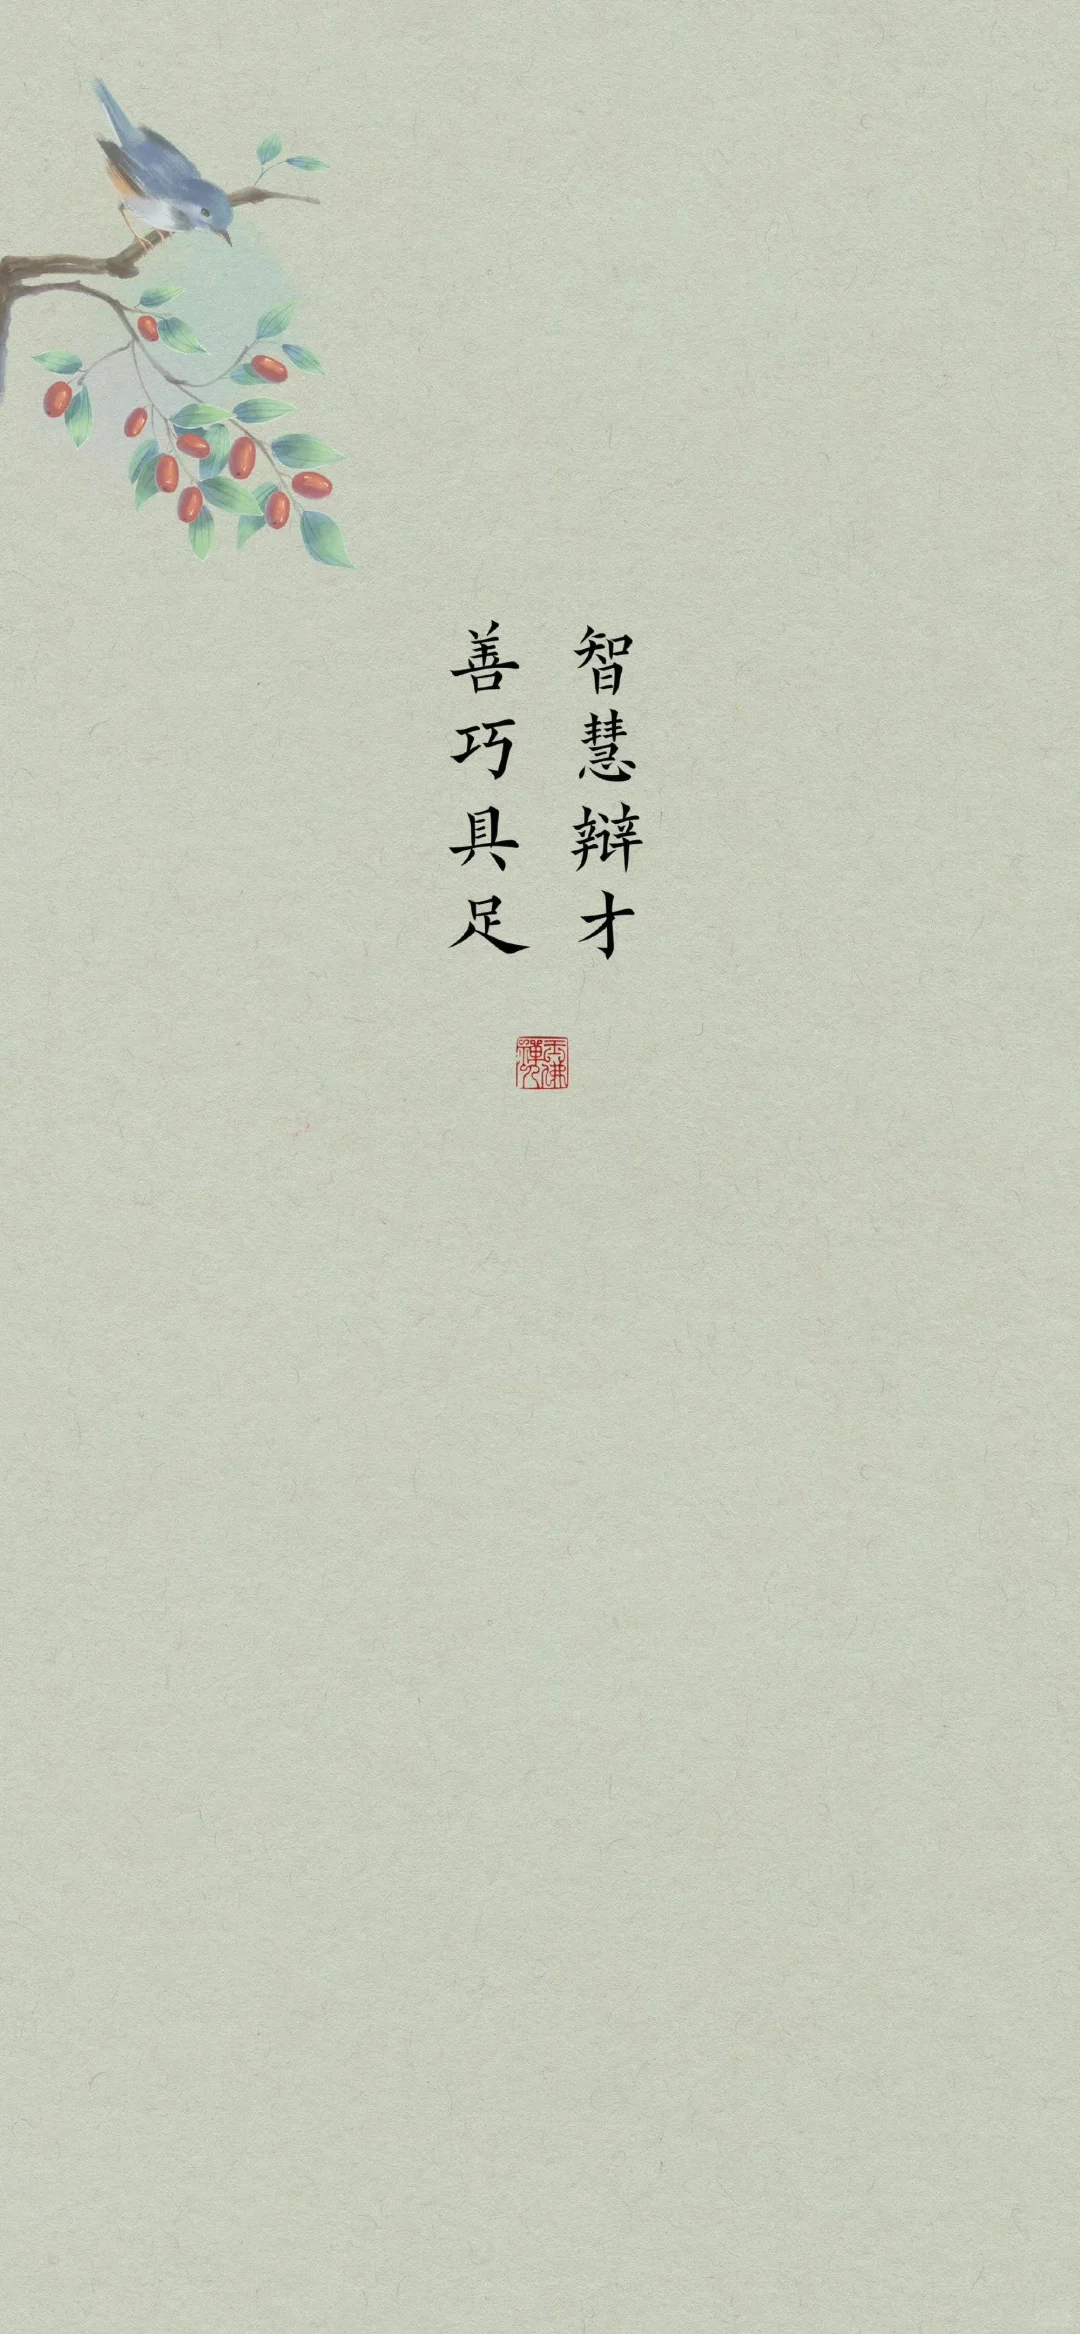 智慧辩才
善巧具足